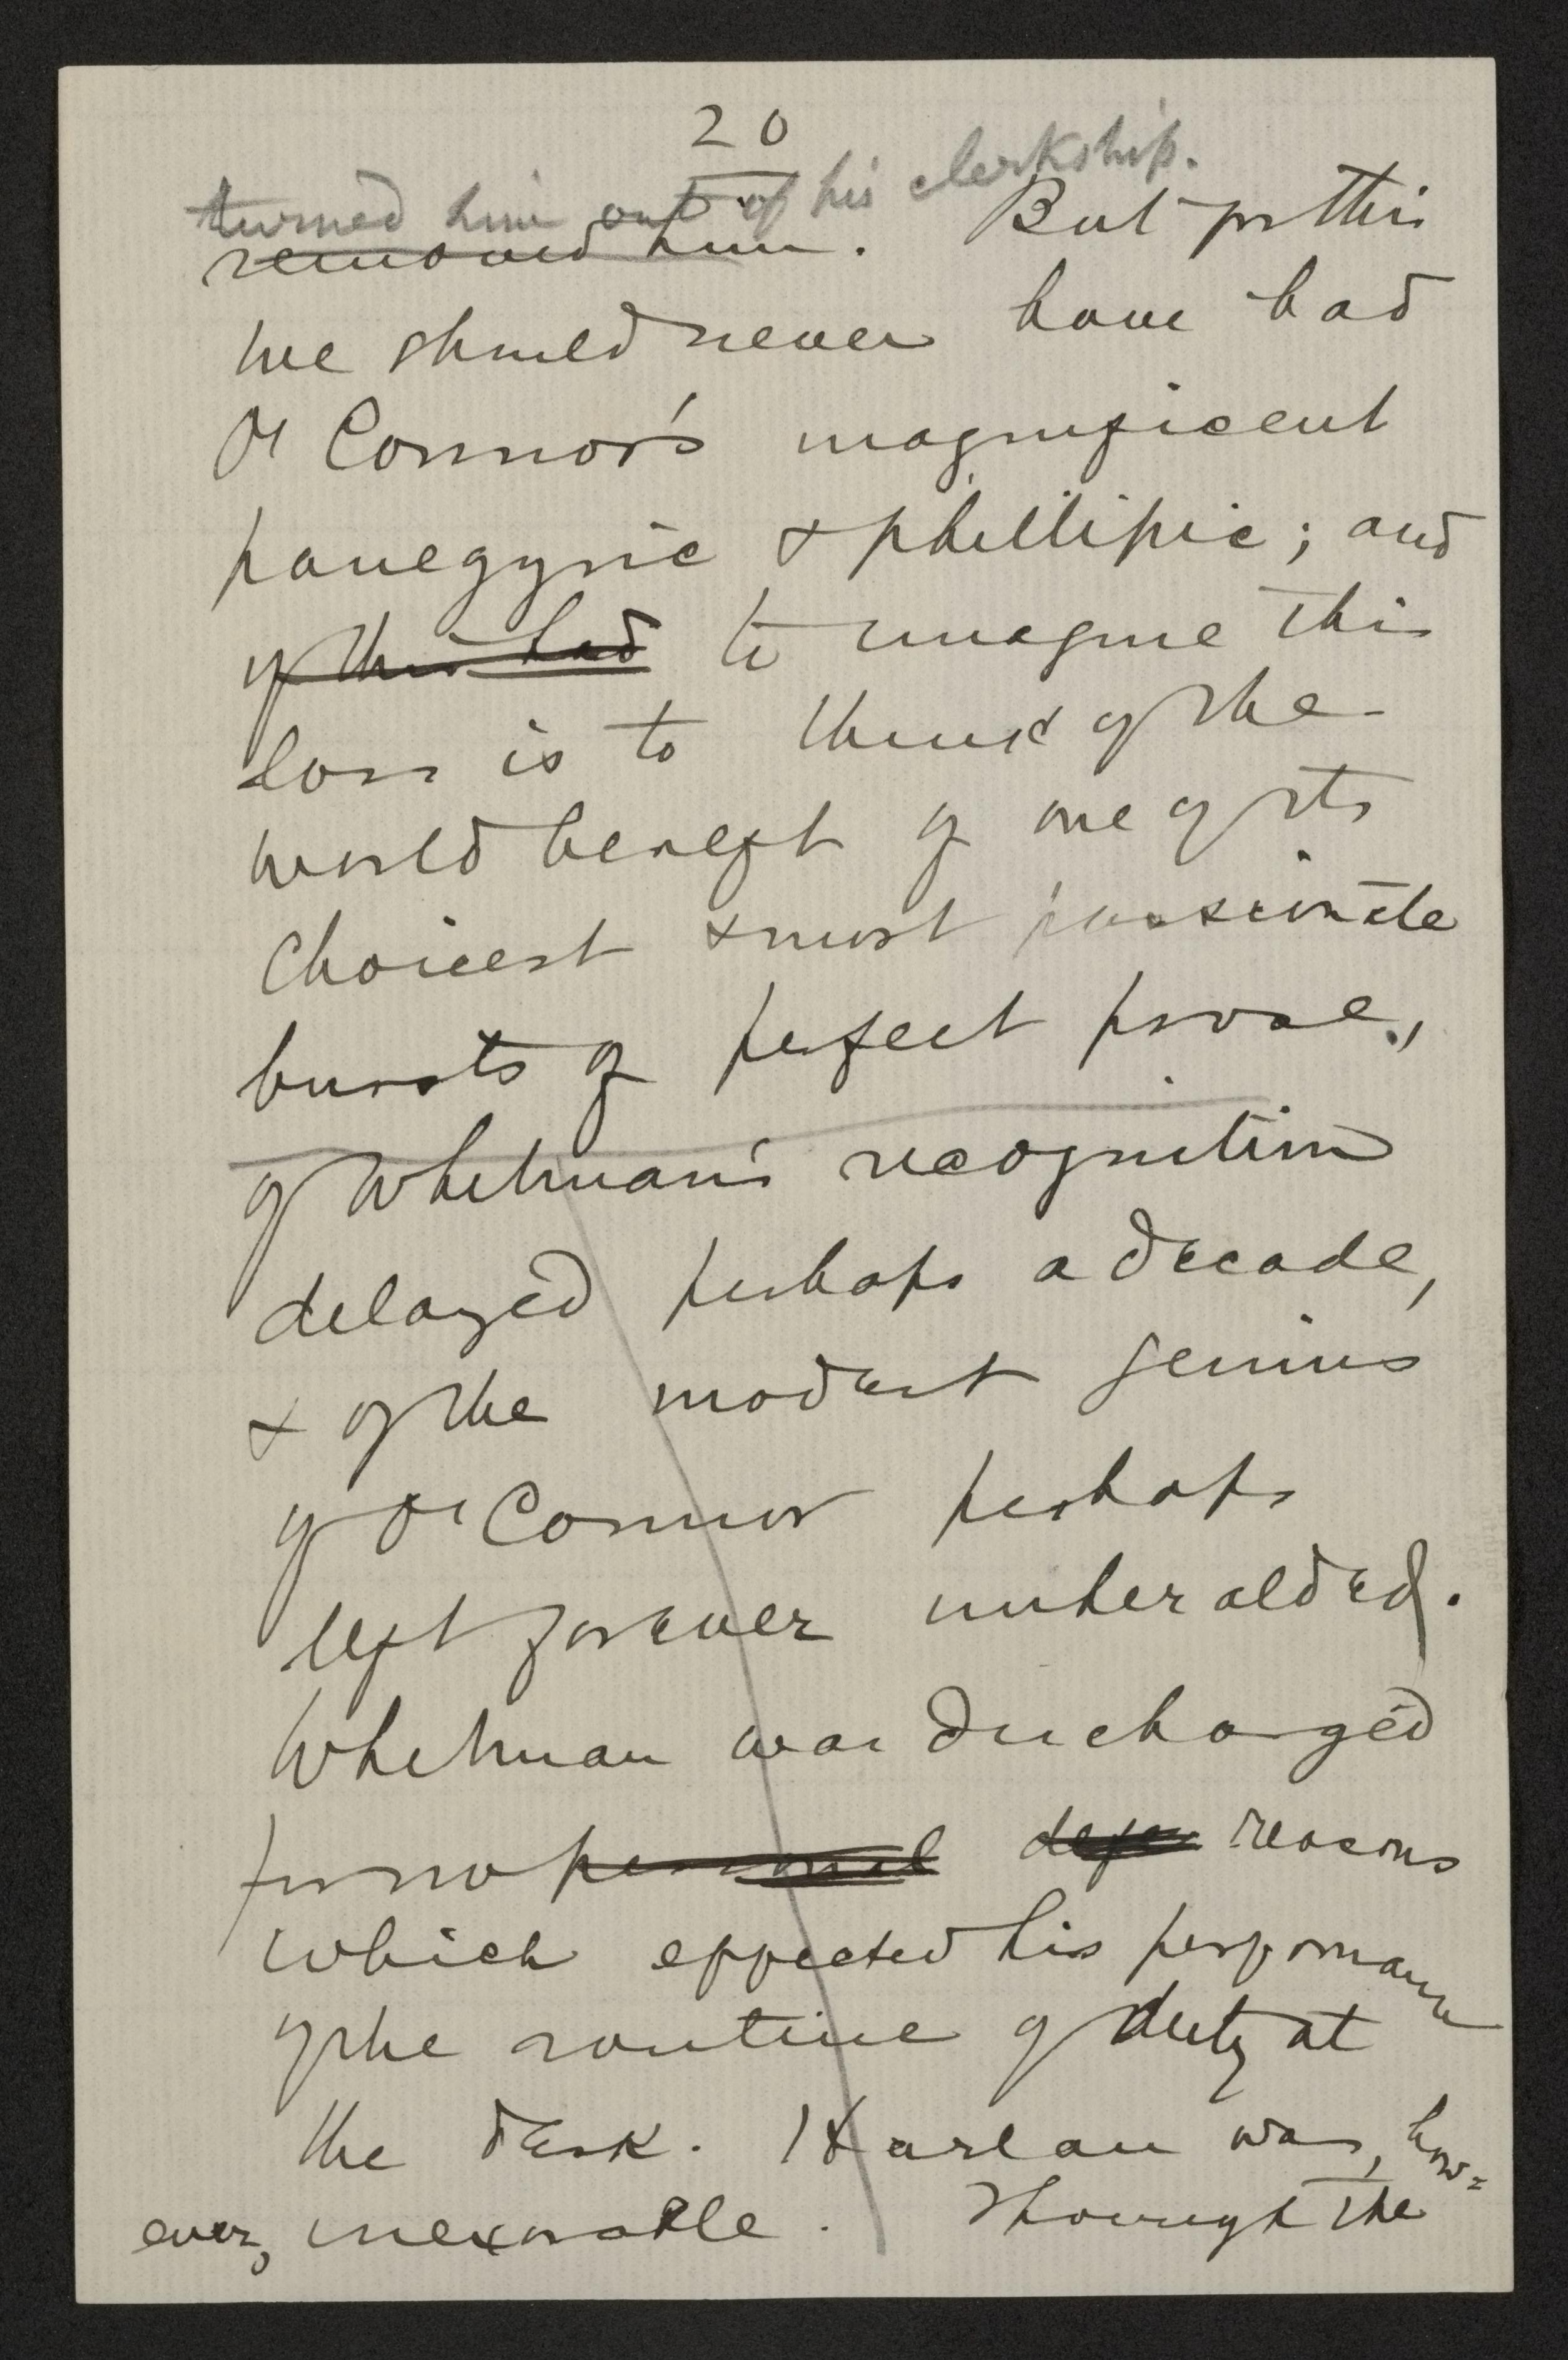 20
turned him out of his clerkship.
removed him. But for this
we should never have had
O'Connor's magnificent
panegyric & phillipic; and
if this had to imagine this
loss is to think of the
world bereft of one of its
choicest & most passionate
bursts of perfect prose,
of Whitman's recognition
delayed perhaps a decade,
& of the modest genius
of O'Connor perhaps
left forever unheralded.
Whitman was discharged
for no personal defec reasons
which effected his performance
of the routine of duty at
the desk. Harlan was, how=
ever, inexorable. Through the